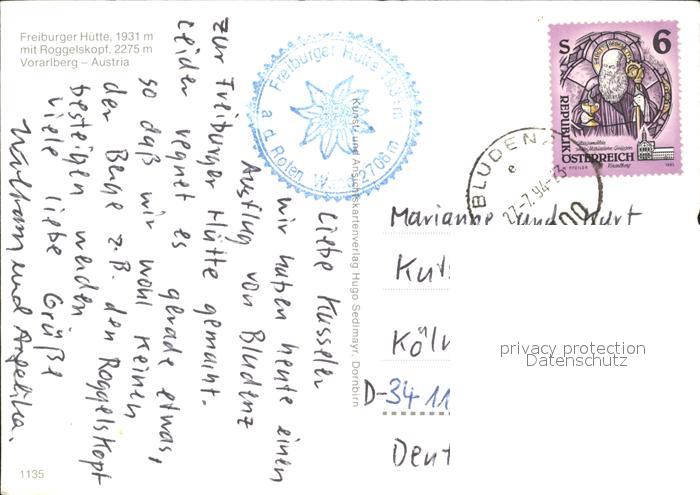 Freiburger Hütte, 1931 m
mit Roggelskopf, 2275 m
Vorarlberg – Austria
Liebe Kasseler
wir haben heute einen
Ausflug von Bludenz
zur Freiburger Hütte gemacht.
Leider regnet es gerade etwas,
so daß wir wohl keinen
der Berge z.B. den Roggelskopf
besteigen werden
viele liebe Grüße
Wolfram und Angelika.
1135
Freiburger Hütte 1931 m
a. d. Roten 2706 m
Kunst- und Ansichtskartenverlag Hugo Sedlmayr, Dornbirn
S 6
REPUBLIK
ÖSTERREICH
BLUDENZ
e
Marianne und Kurt
Köln
D-34 11
privacy protection
Datenschutz